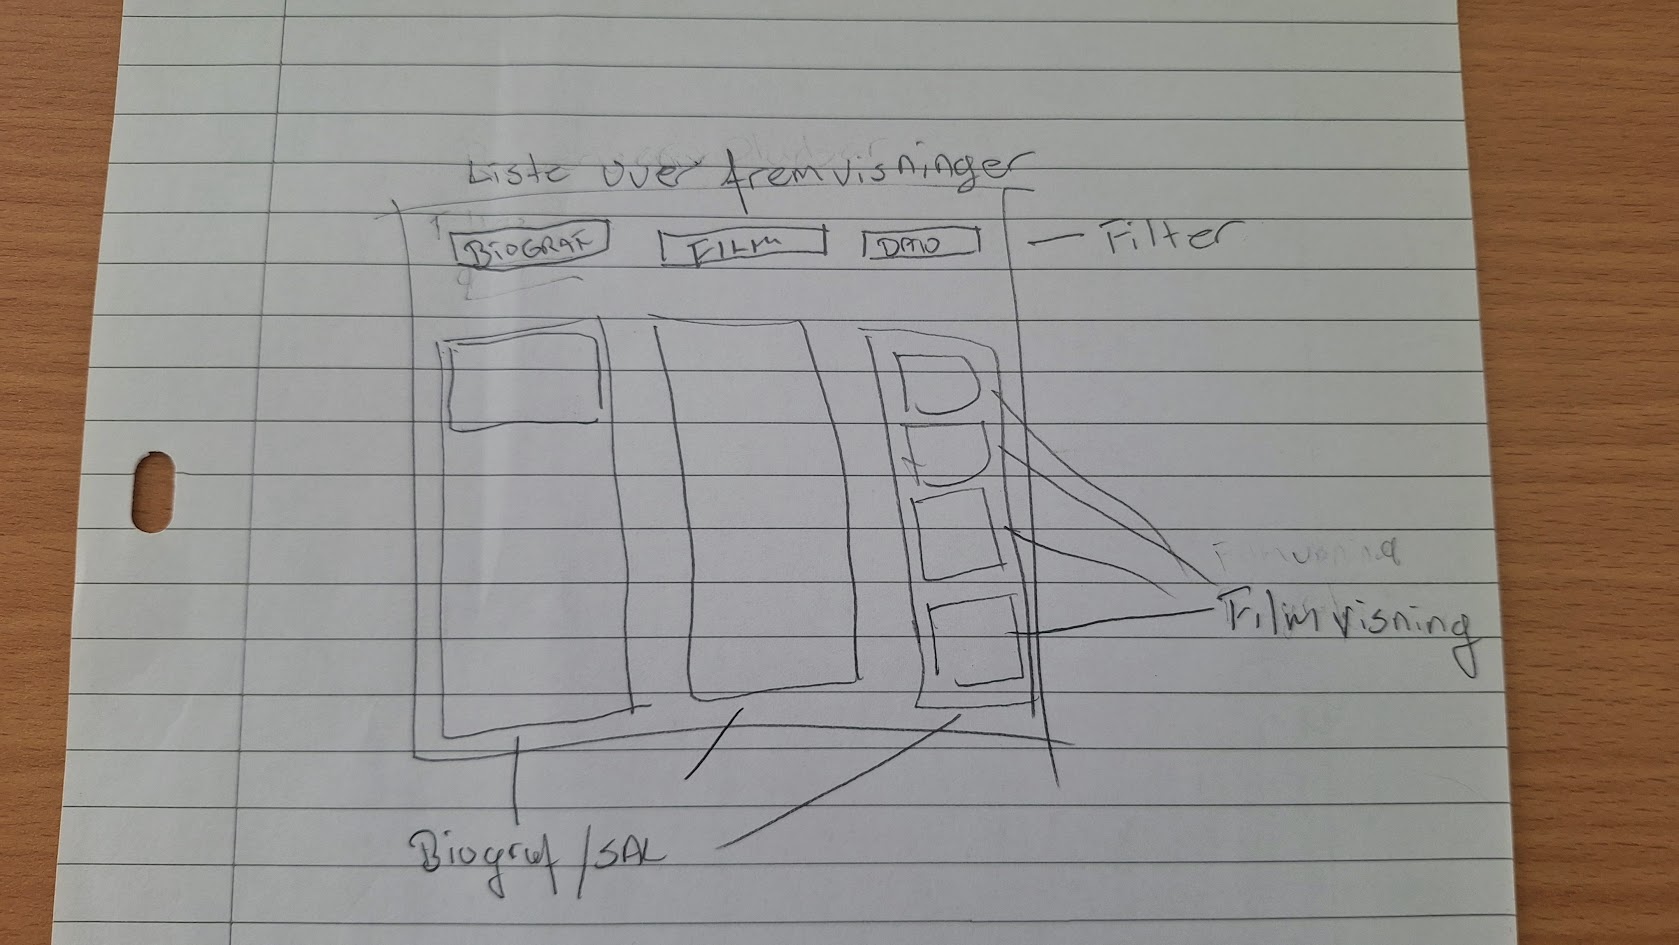 Liste over fremvisninger
BIOGRAF FILM DATO
Filter
Filmvisning
Biograf/SAL